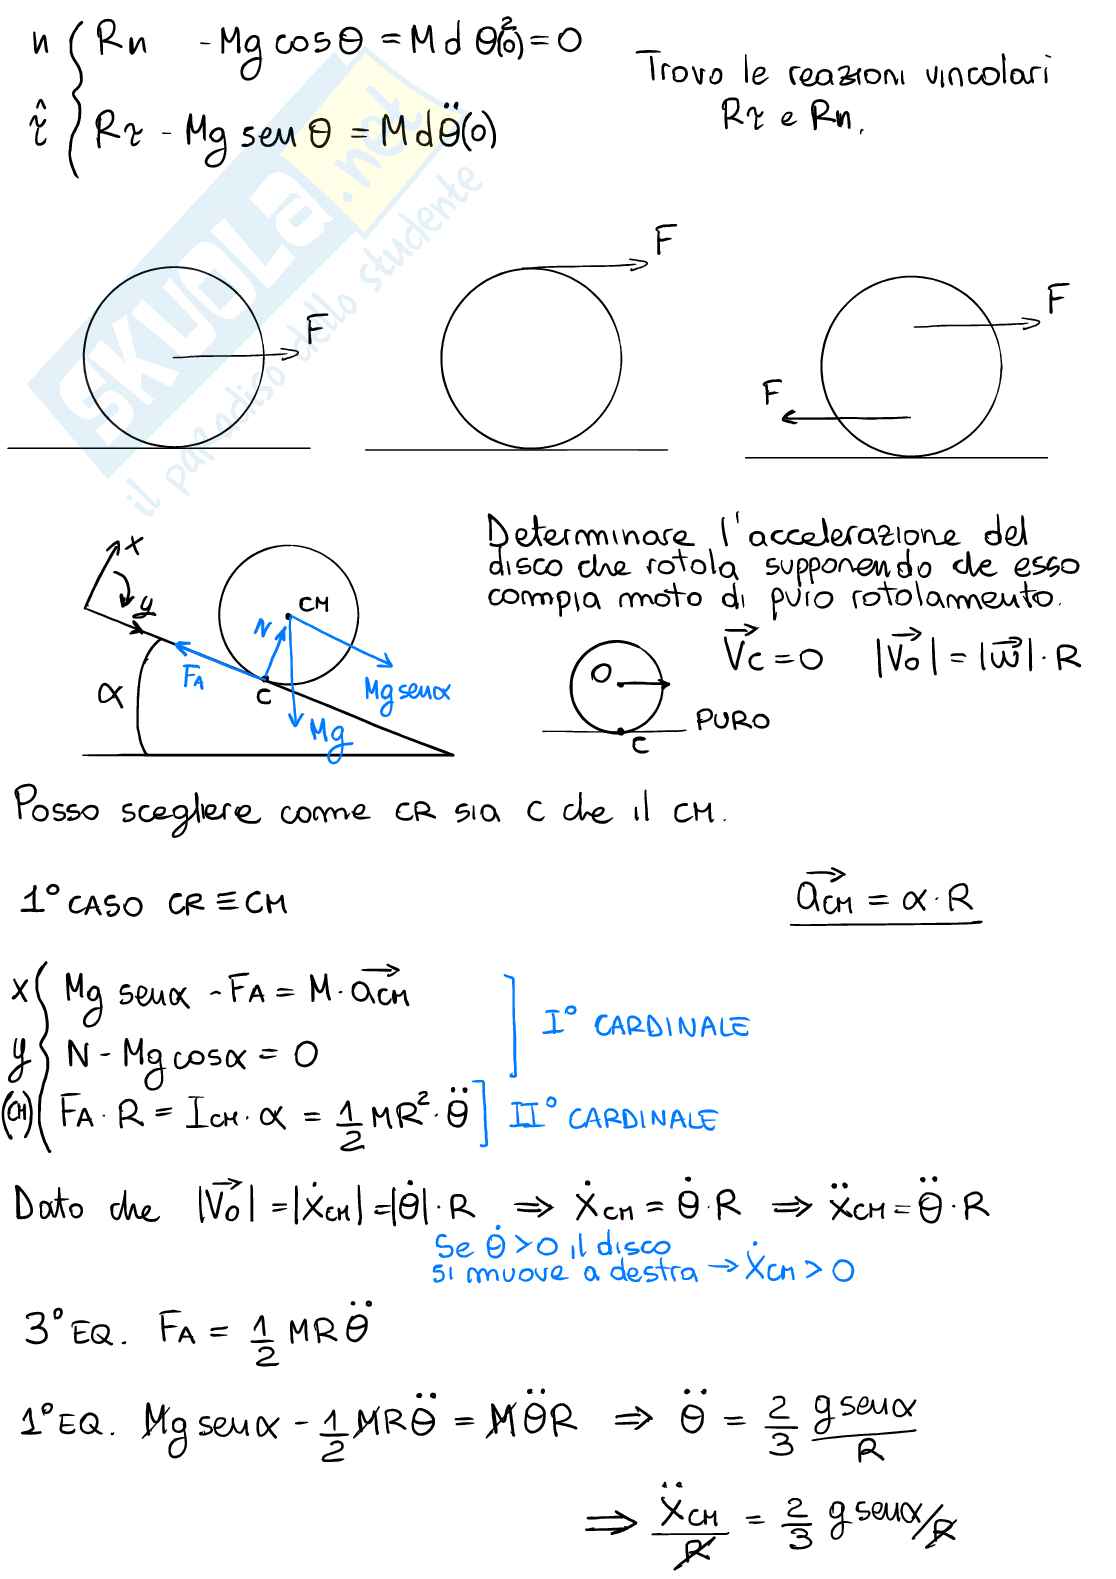 n { Rn - Mg cos θ = M d θ̇²(0) = 0
τ̂ { Rτ - Mg sen θ = M d θ̈(0)
Trovo le reazioni vincolari
Rτ e Rn.
SKUOLa.net
il paradiso dello studente
F
F
F
F
x
y
α
N
CM
FA
C
Mg senα
Mg
Determinare l'accelerazione del
disco che rotola supponendo che esso
compia moto di puro rotolamento.
O
C
PURO
Vc = 0 |Vo| = |ω| · R
Posso scegliere come CR sia C che il CM.
1° CASO CR ≡ CM
aCM = α · R
x { Mg senα - FA = M · aCM
y { N - Mg cosα = 0
] I° CARDINALE
(CM) { FA · R = ICM · α = 1/2 MR² · θ̈ ] II° CARDINALE
Dato che |Vo| = |ẋCM| = |θ̇| · R ⇒ ẋCM = θ̇ · R ⇒ ẍCM = θ̈ · R
Se θ̇ > 0 il disco
si muove a destra → ẋCM > 0
3° EQ. FA = 1/2 MRθ̈
1° EQ. Mg senα - 1/2 MRθ̈ = Mθ̈R ⇒ θ̈ = 2/3 g senα/R
⇒ ẍCM/R = 2/3 g senα/R